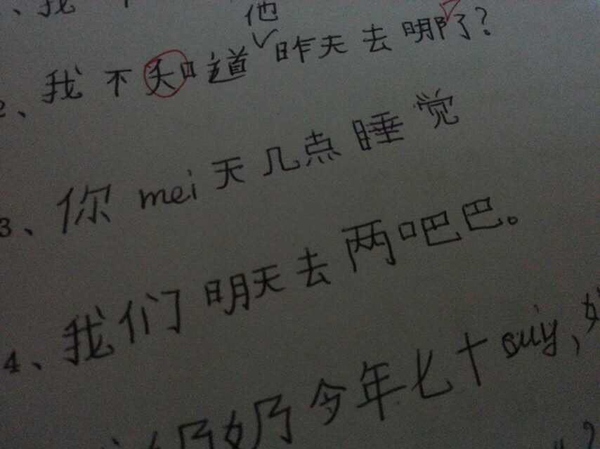 、我
他
2、我不知道昨天去哪了?
3、你mei天几点睡觉
4、我们明天去两吧巴。
奶奶今年七十suiy,